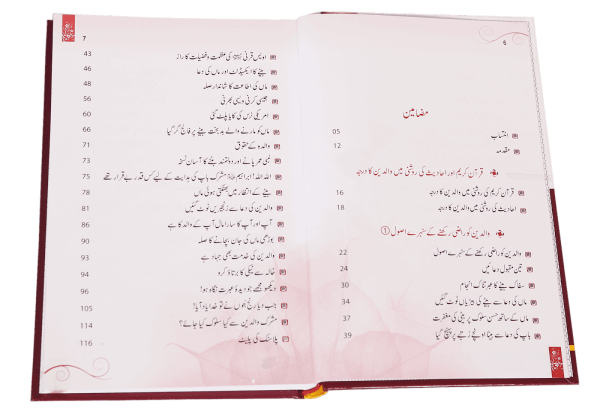 6
مضامین
انتساب 05
مقدمہ 12
قرآن کریم اور احادیث کی روشنی میں والدین کا درجہ
قرآن کریم کی روشنی میں والدین کا درجہ 16
احادیث کی روشنی میں والدین کا درجہ 18
والدین کو راضی رکھنے کے سنہرے اصول ①
والدین کو راضی رکھنے کے سنہرے اصول 22
تین مقبول دعائیں 24
سفاک بیٹے کا عبرتناک انجام 30
ماں کی دعا سے بیٹے کی بیڑیاں ٹوٹ گئیں 34
ماں کے ساتھ حسن سلوک پر بیٹی کی مغفرت 37
باپ کی دعا سے بیٹا اونچے رتبے پر پہنچ گیا 39
7
اویس قرنی کی عظمت و فضیلت کا راز 43
بیٹے کا ایکسیڈنٹ اور ماں کی دعا 46
ماں کی اطاعت کا شاندار صلہ 48
جیسی کرنی ویسی بھرنی 56
امریکی نرس کی کایا پلٹ گئی 60
ماں کو مارنے والے بدبخت بیٹے پر فالج گر گیا 66
والدہ کے حقوق 71
لمبی عمر پانے اور دولتمند بننے کا آسان نسخہ 73
اللہ اللہ! ابراہیم مشرک باپ کی ہدایت کے لیے کس قدر بے قرار تھے 75
بیٹے کے انتظار میں بھٹکتی ہوئی ماں 78
والدین کی دعا سے زنجیریں ٹوٹ گئیں 81
آپ اور آپ کا سارا مال آپ کے والد کا ہے 86
بوڑھی ماں کی جان بچانے کا صلہ 90
والدین کی خدمت بھی جہاد ہے 93
خالہ سے نیکی کا برتاؤ کرو 94
دیکھو مجھے جو دیدۂ عبرت نگاہ ہو! 96
جب دیا رنج بتوں نے تو خدا یاد آیا! 105
مشرک والدین سے کیا سلوک کیا جائے؟ 114
پلاسٹک کی پلیٹ 116